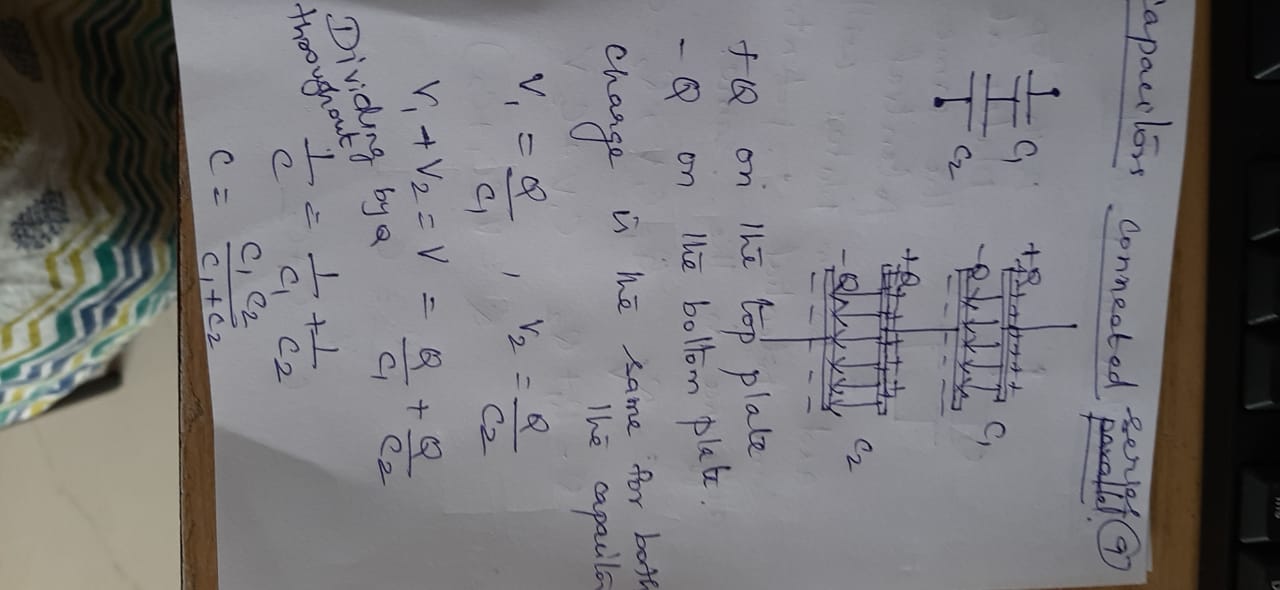 Capacitors connected series parallel. 9
C1
C2
+Q + + + + + +
C1
-Q
- - - -
+Q + + + + + +
C2
-Q
- - - -
+Q on the top plate
-Q on the bottom plate.
Charge is the same for both
the capacitor
V1 = Q/C1 , V2 = Q/C2
V1 + V2 = V = Q/C1 + Q/C2
Dividing by Q
throughout
1/C = 1/C1 + 1/C2
C = C1 C2/C1 + C2